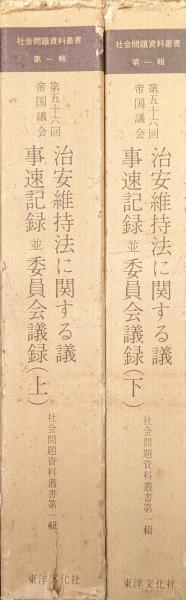 社会問題資料叢書
第一輯
第五十六回
帝国議会
治安維持法に関する議
事速記録並委員会議録(上)
社会問題資料叢書第一輯
東洋文化社
社会問題資料叢書
第一輯
第五十六回
帝国議会
治安維持法に関する議
事速記録並委員会議録(下)
社会問題資料叢書第一輯
東洋文化社